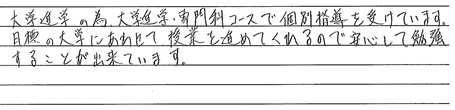 大学進学の為、大学進学・専門科コースで個別指導を受けています。
目標の大学にあわせて授業を進めてくれるので安心して勉強
することが出来ています。